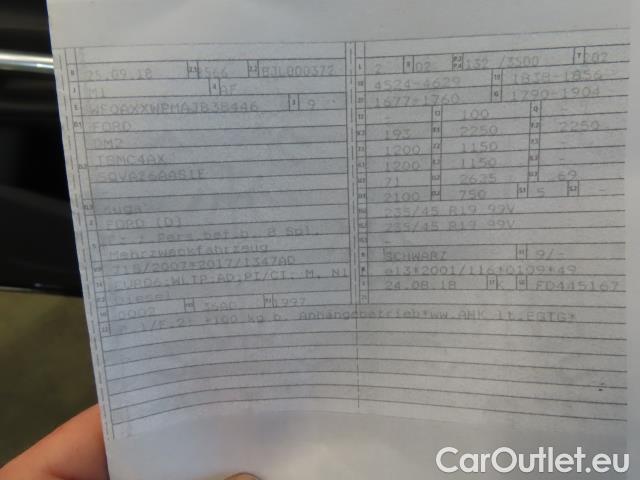 25.09.18 8566 BJL000372
M1 AF
WF0AXXWPMAJB38446 9
FORD
DM2
TSMC4AX
5QVA26AAS1E
Kuga
FORD (D)
Fz.z.Pers.bef.b. 8 Spl.
Mehrzweckfahrzeug
715/2007*2017/1347AD
EURO6;WLTP-AD;PI/CI: M, N1
Diesel
0002 36AD 1997
2 02 132 /3500 102
4524-4629 1838-1856
1677-1760 1790-1904
- 100 -
193 2250 2250
1200 1150 -
1200 1150 -
71 2635 69
2100 750 5 -
235/45 R19 99V
235/45 R19 99V
-
SCHWARZ 9/-
e13*2001/116*0109*49
24.08.18 K FD445167
+100 kg b. Anhängebetrieb*ww.AHK lt.EGTG*
CarOutlet.eu